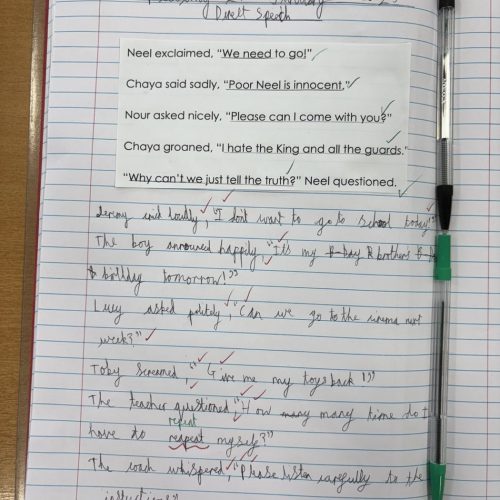 Direct Speech
Neel exclaimed, “We need to go!”
Chaya said sadly, “Poor Neel is innocent.”
Nour asked nicely, “Please can I come with you?”
Chaya groaned, “I hate the King and all the guards.”
“Why can’t we just tell the truth?” Neel questioned.
Jeremy said loudly, “I don't want to go to school today!”
The boy announced happily, “It's my brother's
birthday tomorrow!”
Lucy asked politely, “Can we go to the cinema next
week?”
Toby screamed, “Give me my toys back!”
The teacher questioned, “How many many time do I
repeat
have to reapeat myself?”
The coach whispered, “Please listen carefully to the